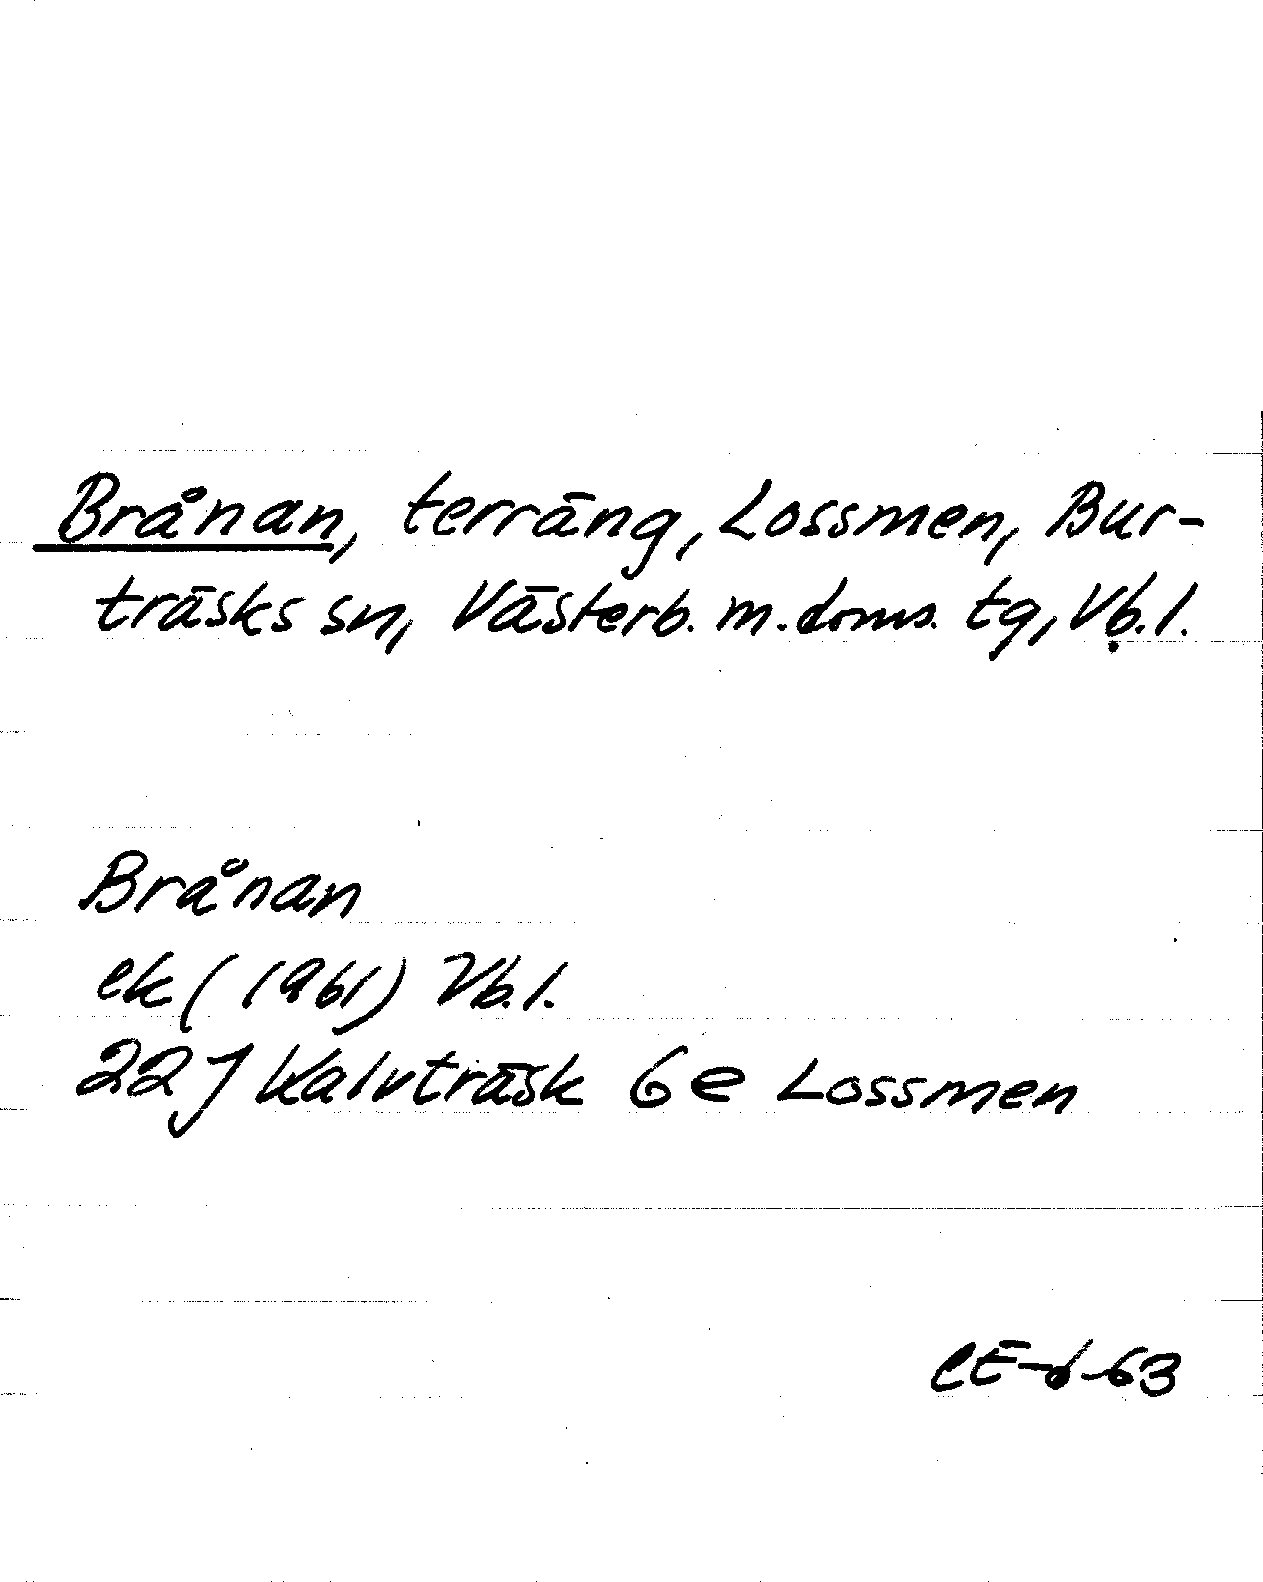 Brånan, terräng, Lossmen, Bur-
träsks sn, Västerb. m. doms. tg, Vb. l.
Brånan
ek (1961) Vb. l.
22 J Kalvträsk 6e Lossmen
CE-6-63